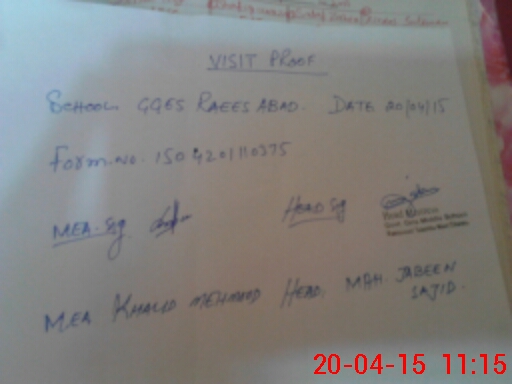 VISIT PROOF
SCHOOL GGES RAEES ABAD. DATE 20/04/15
Form.No. 150 4201110375
MEA-Sig HEAD Sig
Head Mistress
Govt. Girls Middle School
MEA KHALID MEHMOOD HEAD. MAH. JABEEN
SAJID.
20-04-15 11:15